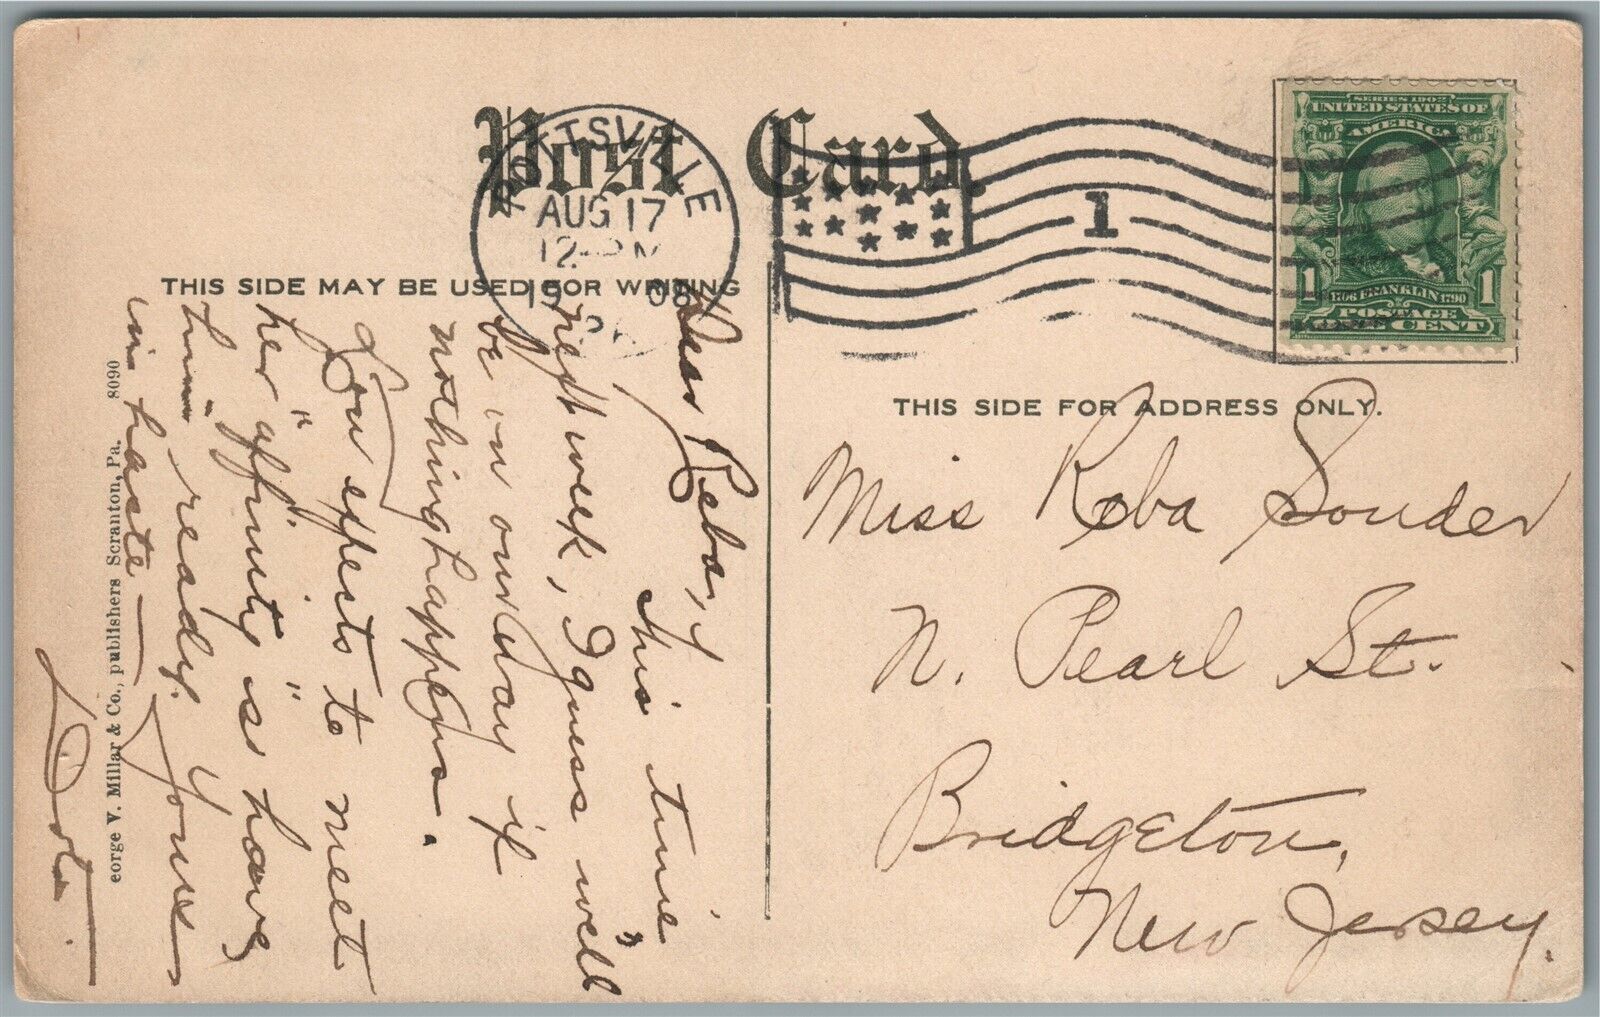 Post Card.
POTTSVILLE
AUG 17
12-PM
1908
PA.
1
SERIES 1902
UNITED STATES OF
AMERICA
1 1706 FRANKLIN 1790 1
POSTAGE
ONE CENT
THIS SIDE MAY BE USED FOR WRITING
THIS SIDE FOR ADDRESS ONLY.
Dear Reba,
This time
next week, I guess we'll
be on our way if
nothing happens.
Lou expects to meet
her "affinity" so have
him ready. Yours
in haste—
Dot.
eorge V. Millar & Co., publishers Scranton, Pa. 8090
Miss Reba Souder
N. Pearl St.
Bridgeton,
New Jersey.